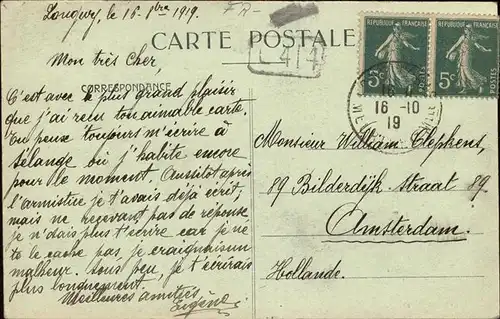 Longwy, le 16 - 8bre 1919.
FR-
CARTE POSTALE
L 414
REPUBLIQUE FRANÇAISE
REPUBLIQUE FRANÇAISE
5c POSTES
5c POSTES
16
16 -10
19
Mon très Cher,
CORRESPONDANCE
C'est avec le plus grand plaisir
que j'ai reçu ton aimable carte.
Tu peux toujours m'écrire à
Sélange où j'habite encore
pour le moment. Aussitôt après
l'armistice je t'avais déjà écrit,
mais ne recevant pas de réponse,
je n'osais plus t'écrire car je ne
te le cache pas, je craignais un
malheur. Sous peu, je t'écrirais
plus longuement.
Meilleures amitiés
Eugène
Monsieur William Clephens,
89 Bilderdijk-Straat 89.
Amsterdam.
Hollande.